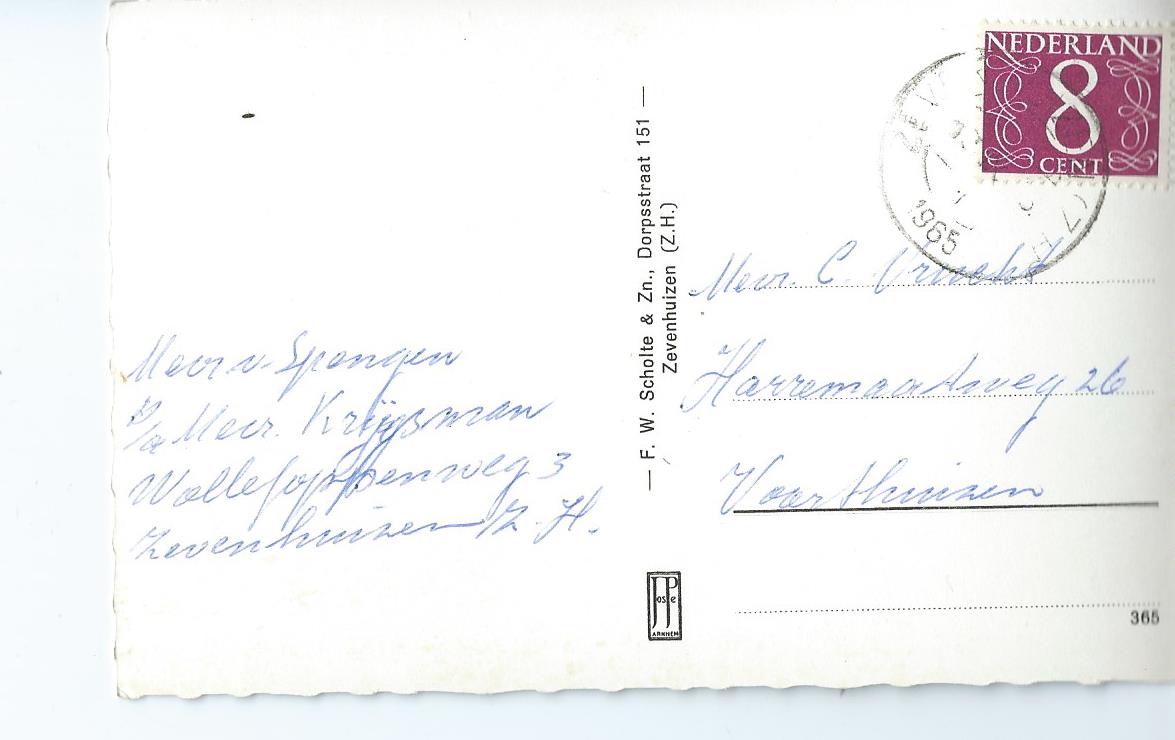 NEDERLAND
8
CENT
1965
— F. W. Scholte & Zn., Dorpsstraat 151 —
Zevenhuizen (Z.H.)
Mevr. C.
Harremaatweg 26
Voorthuizen
Mevr v. Spengen
p/a Mevr. Krijgsman
Wollefoppenweg 3
Zevenhuizen Z.H.
JosPe
ARNHEM
365